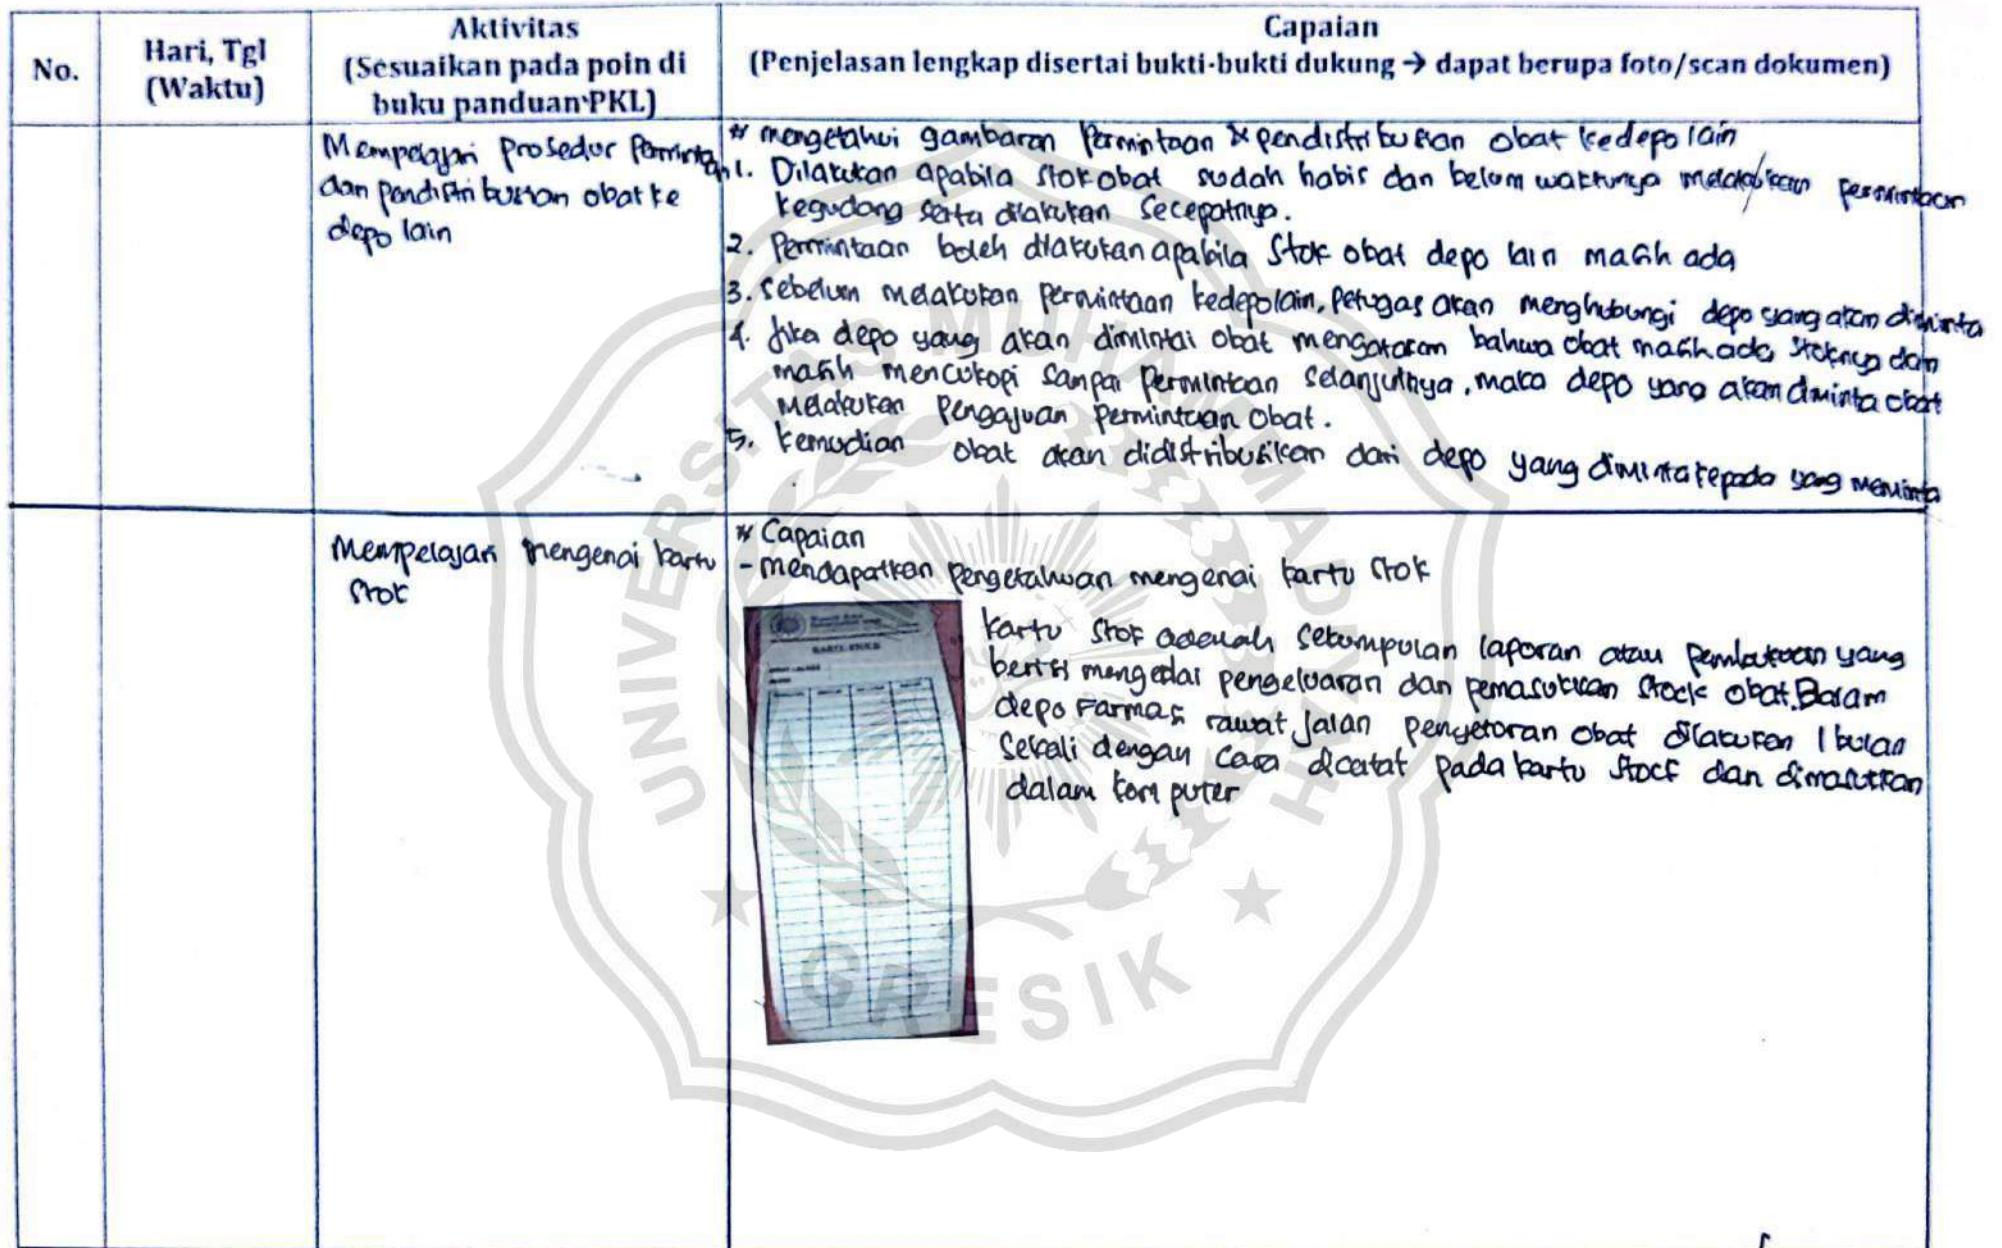 No.
Hari, Tgl
(Waktu)
Aktivitas
(Sesuaikan pada poin di
buku panduan PKL)
Capaian
(Penjelasan lengkap disertai bukti-bukti dukung → dapat berupa foto/scan dokumen)
Mempelajari prosedur Permintaan
dan pendistribusian obat ke
depo lain
* mengetahui gambaran Permintaan & pendistribusian obat kedepo lain
1. Dilakukan apabila stok obat sudah habis dan belum waktunya melakukan permintaan
kegudang serta dilakukan secepatnya.
2. Permintaan boleh dilakukan apabila Stok obat depo lain masih ada
3. sebelum melakukan permintaan kedepolain, petugas akan menghubungi depo yang akan diminta
4. Jika depo yang akan dimintai obat mengatakan bahwa obat masih ada stoknya dan
masih mencukupi sampai permintaan selanjutnya, maka depo yang akan diminta obat
melakukan pengajuan permintaan obat.
5. kemudian obat akan didistribusikan dari depo yang diminta kepada yang meminta
Mempelajari mengenai kartu
stok
* Capaian
- mendapatkan pengetahuan mengenai kartu stok
KARTU STOCK
kartu stok adalah sekumpulan laporan atau pembukuan yang
berisi mengenai pengeluaran dan pemasukkan stock obat. Dalam
depo Farmasi rawat jalan penyetoran obat dilakukan 1 bulan
sekali dengan cara dicatat pada kartu stock dan dimasukkan
dalam komputer
UNIVERSITAS MUHAMMADIYAH
GRESIK